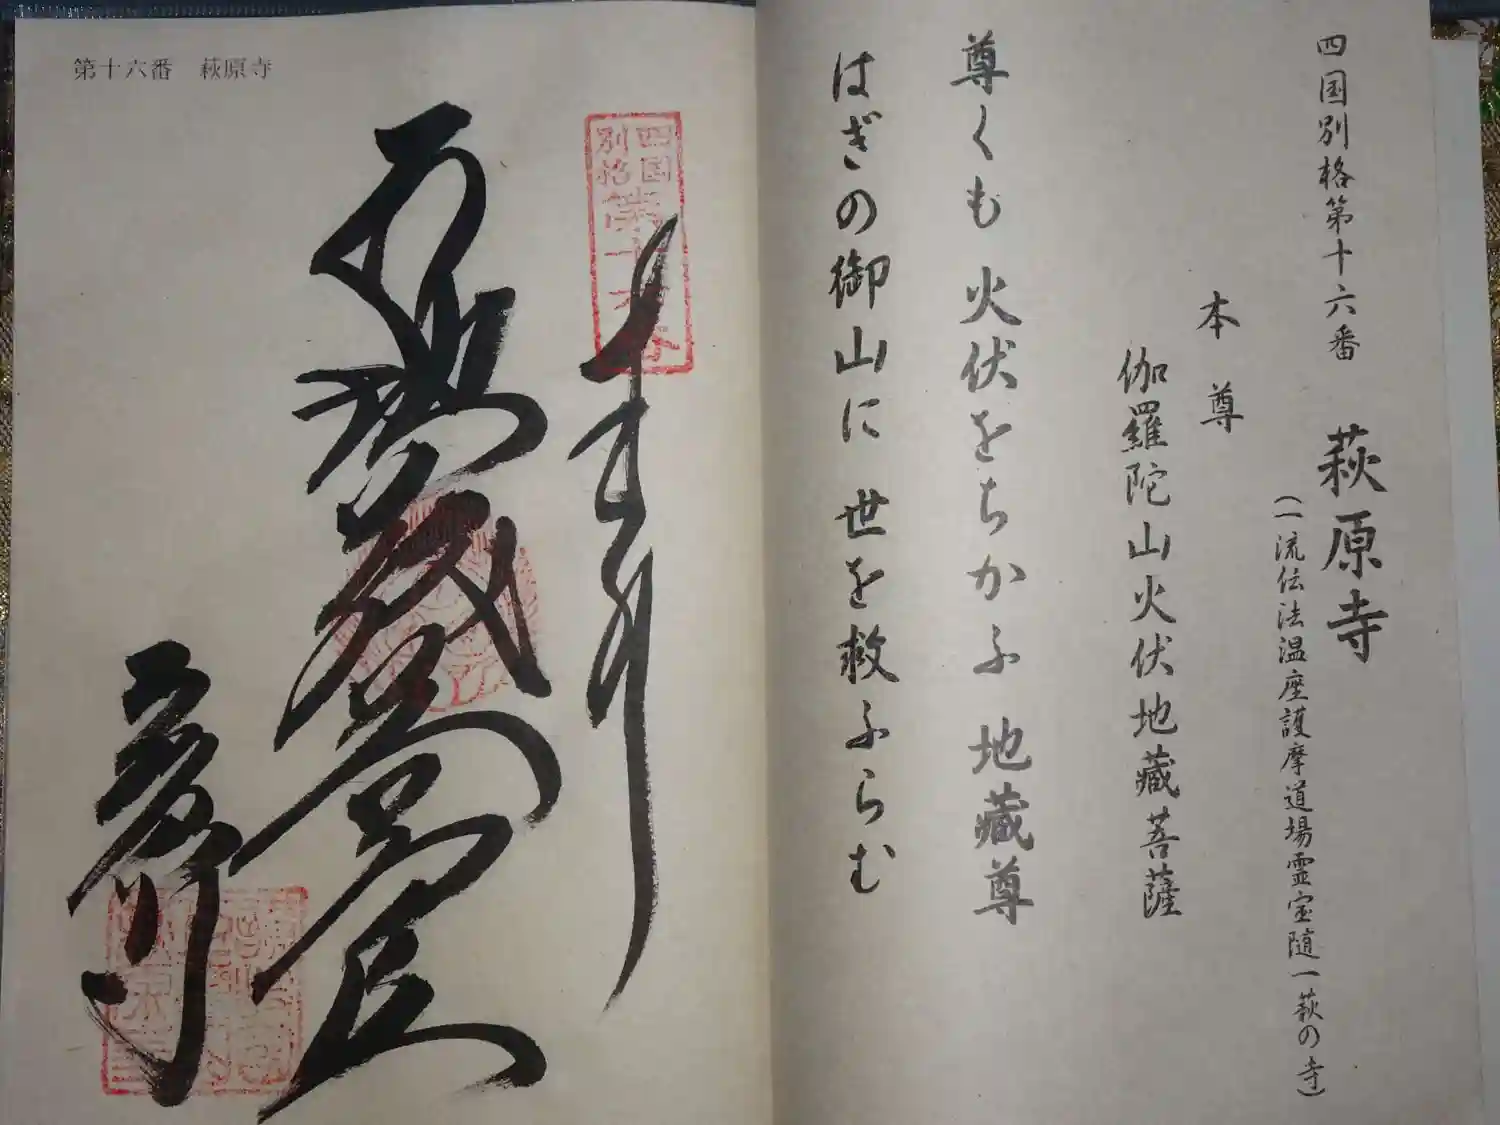 四国別格第十六番 萩原寺
(一流伝法温座護摩道場霊宝随一萩の寺)
本尊
伽羅陀山火伏地蔵菩薩
尊くも火伏をちかふ地蔵尊
はぎの御山に世を救ふらむ
第十六番 萩原寺
四国
別格
第十六番
奉拝